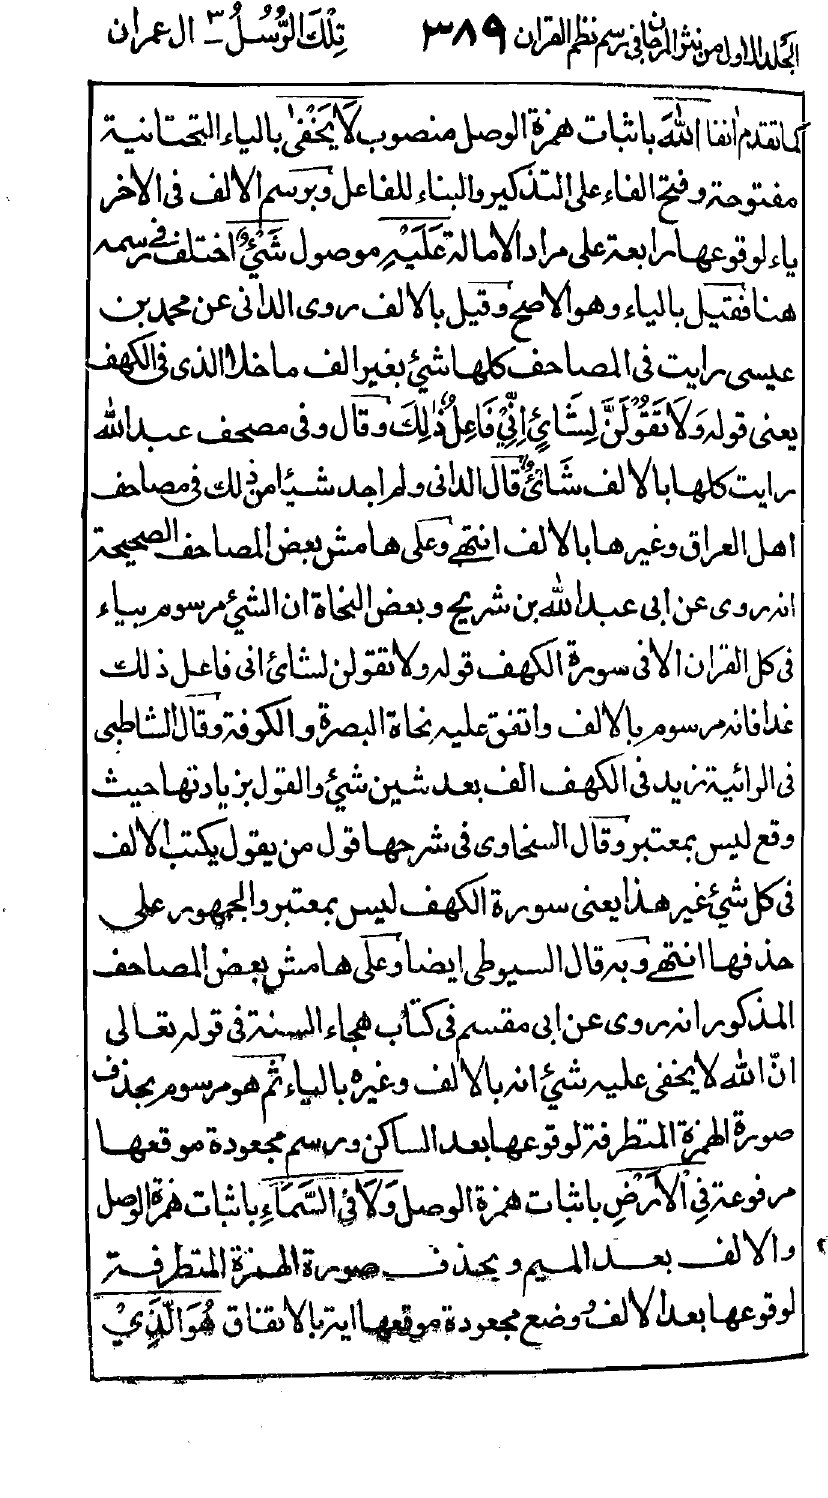 الجلد الاول من نثر المرجان فى رسم نظم القران ٣٨٩ تِلْكَ الرُّسُلُ ٣ ال عمران
كما تقدم اٰنفا اللّٰهَ باثبات همزة الوصل منصوب لَا يَخْفٰى بالياء التحتانية
مفتوحة وفتح الفاء على التذكير والبناء للفاعل وبرسم الالف فى الاخر
ياء لوقوعها رابعة على مراد الامالة عَلَيْهِ موصول شَيْءٌ اختلف فى رسمه
هنا فقيل بالياء وهو الاصح وقيل بالالف روى الدانى عن محمد بن
عيسى رايت فى المصاحف كلها شئ بغير الف ما خلا الذى فى الكهف
يعنى قوله وَلَا تَقُوْلَنَّ لِشَائٍ اِنِّيْ فَاعِلٌ ذٰلِكَ وقال وفى مصحف عبد الله
رايت كلها بالالف شَائٌ قال الدانى ولم اجد شيئا من ذلك فى مصاحف
اهل العراق وغيرها بالالف انتهى وعلى هامش بعض المصاحف الصحيحة
انه روى عن ابى عبد الله بن شريح وبعض النحاة ان الشئ مرسوم بياء
فى كل القران الا فى سورة الكهف قوله ولا تقولن لشائ انى فاعل ذلك
غدا فانه مرسوم بالالف واتفق عليه نحاة البصرة والكوفة وقال الشاطبى
فى الرائية زيد فى الكهف الف بعد شين شئ والقول بزيادتها حيث
وقع ليس بمعتبر وقال السخاوى فى شرحها قول من يقول يكتب الالف
فى كل شئ غير هذا يعنى سورة الكهف ليس بمعتبر والجمهور على
حذفها انتهى وبه قال السيوطى ايضا وعلى هامش بعض المصاحف
المذكور انه روى عن ابى مقسم فى كتاب هجاء السنة فى قوله تعالى
انّ الله لا يخفى عليه شئ انه بالالف وغيره بالياء ثم هو مرسوم بحذف
صورة الهمزة المتطرفة لوقوعها بعد الساكن ورسم مجعودة موقعها
مرفوعة فِي الْاَرْضِ باثبات همزة الوصل وَلَا فِي السَّمَاءِ باثبات همزة الوصل
والالف بعد الميم وبحذف صورة الهمزة المتطرفة
لوقوعها بعد الالف ووضع مجعودة موقعها اية بالاتفاق هُوَ الَّذِيْ